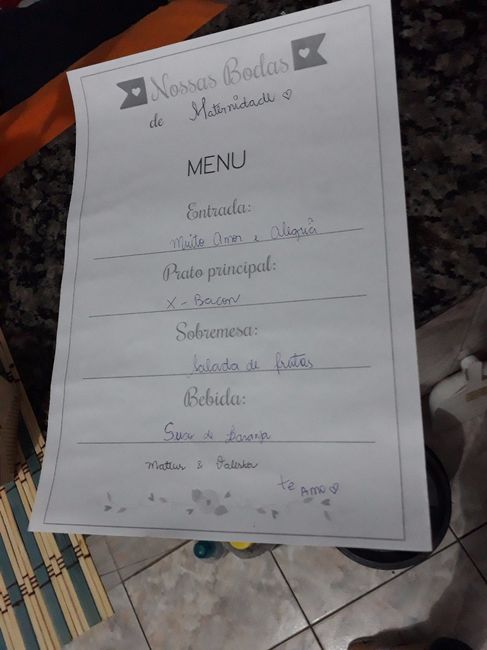 Nossas Bodas
de Maternidade
MENU
Entrada:
Muito Amor e Alegria
Prato principal:
X-Bacon
Sobremesa:
Salada de frutas
Bebida:
Suco de Laranja
&
te Amo